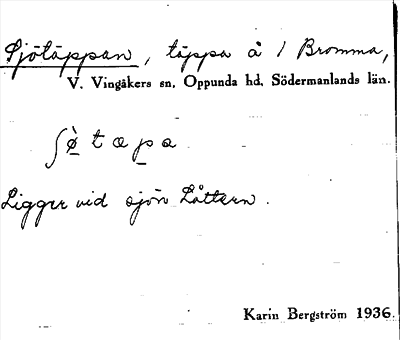 Sjötäppan, täppa å / Bromma,
V. Vingåkers sn, Oppunda hd, Södermanlands län.
ʃø̀tæpa
Ligger vid sjön Låttern.
Karin Bergström 1936.